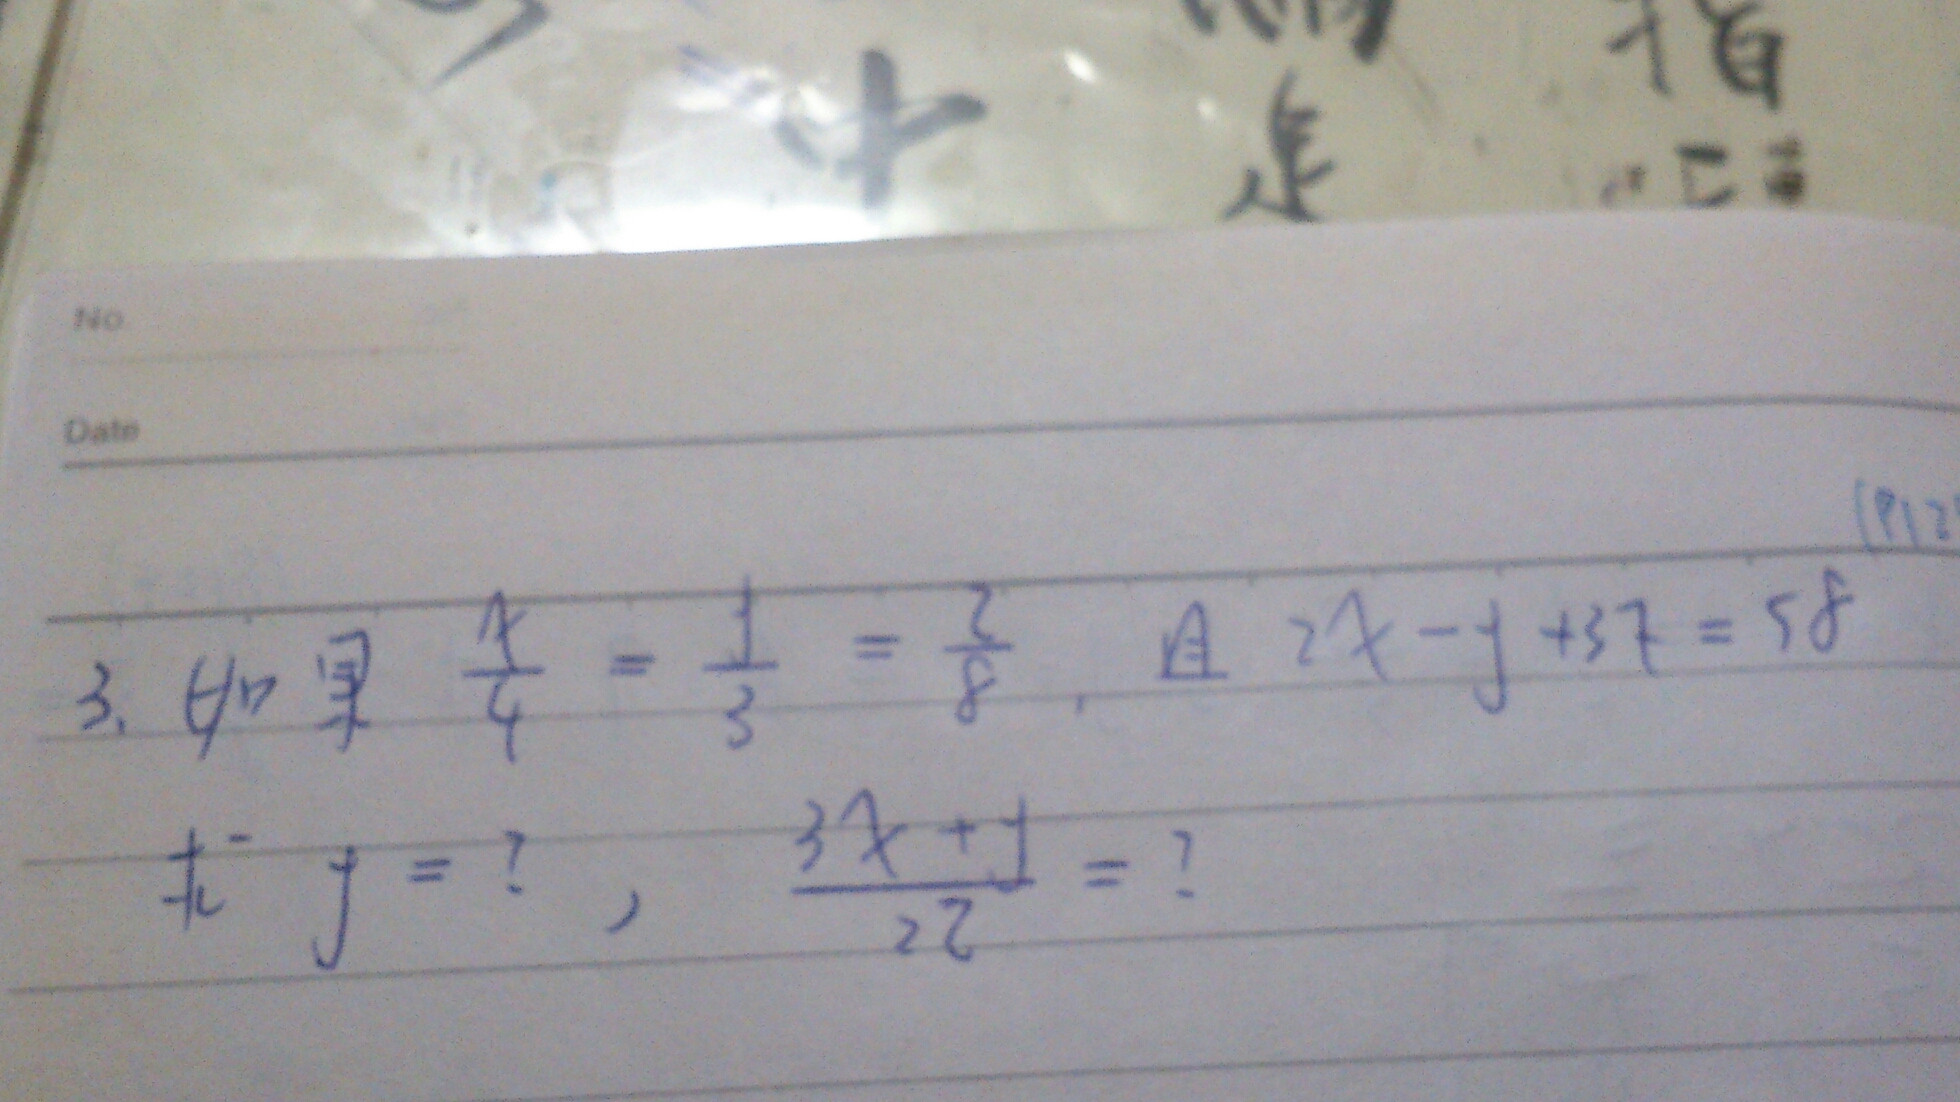 中
No.
Date
3. 如果 x/4 = y/3 = z/8 , 且 2x-y+3z=58
求 y=? , 3x+y/2z = ?